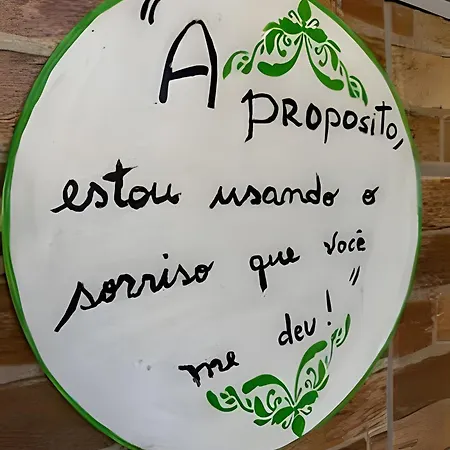 "A
PROPOSITO,
estou usando o
sorriso que você
me deu!"